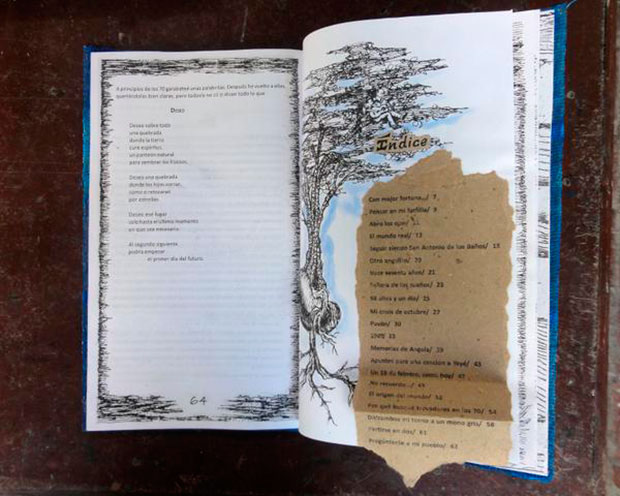 A principios de los 70 garabateé unas palabritas. Después he vuelto a ellas,
queriéndolas bien claras, pero todavía no sé si dicen todo lo que
DESEO
Deseo sobre todo
una quebrada
donde la tierra
cure espíritus,
un panteón natural
para sembrar
Deseo una quebrada
donde los hijos vuelvan,
como a retoñar
por estrellas
Deseo ese lugar
solo hasta el último momento
en que sea necesario
Al segundo siguiente
podría empezar
el primer día del futuro.
64
Índice
Con mejor fortuna.../ 7
Pensar en mi familia/ 9
Abro los ojos/ 11
El mundo real/ 13
Seguir siendo San Antonio de los Baños/ 15
Otro angelito/ 20
Hace setenta años/ 21
Tutora de los sueños/ 23
Mi años y un día/ 25
Mi crisis de octubre/ 27
Puedo/ 30
1969/ 33
Memorias de Angola/ 39
Apuntes para una canción a Yeyé/ 43
Un 18 de febrero, como hoy/
No recuerdo.../ 49
El origen del mundo/ 51
Por qué
en los 70/ 54
en torno a un mono gris/ 58
en dos/ 61
Pregúntenle a mi pueblo/ 62